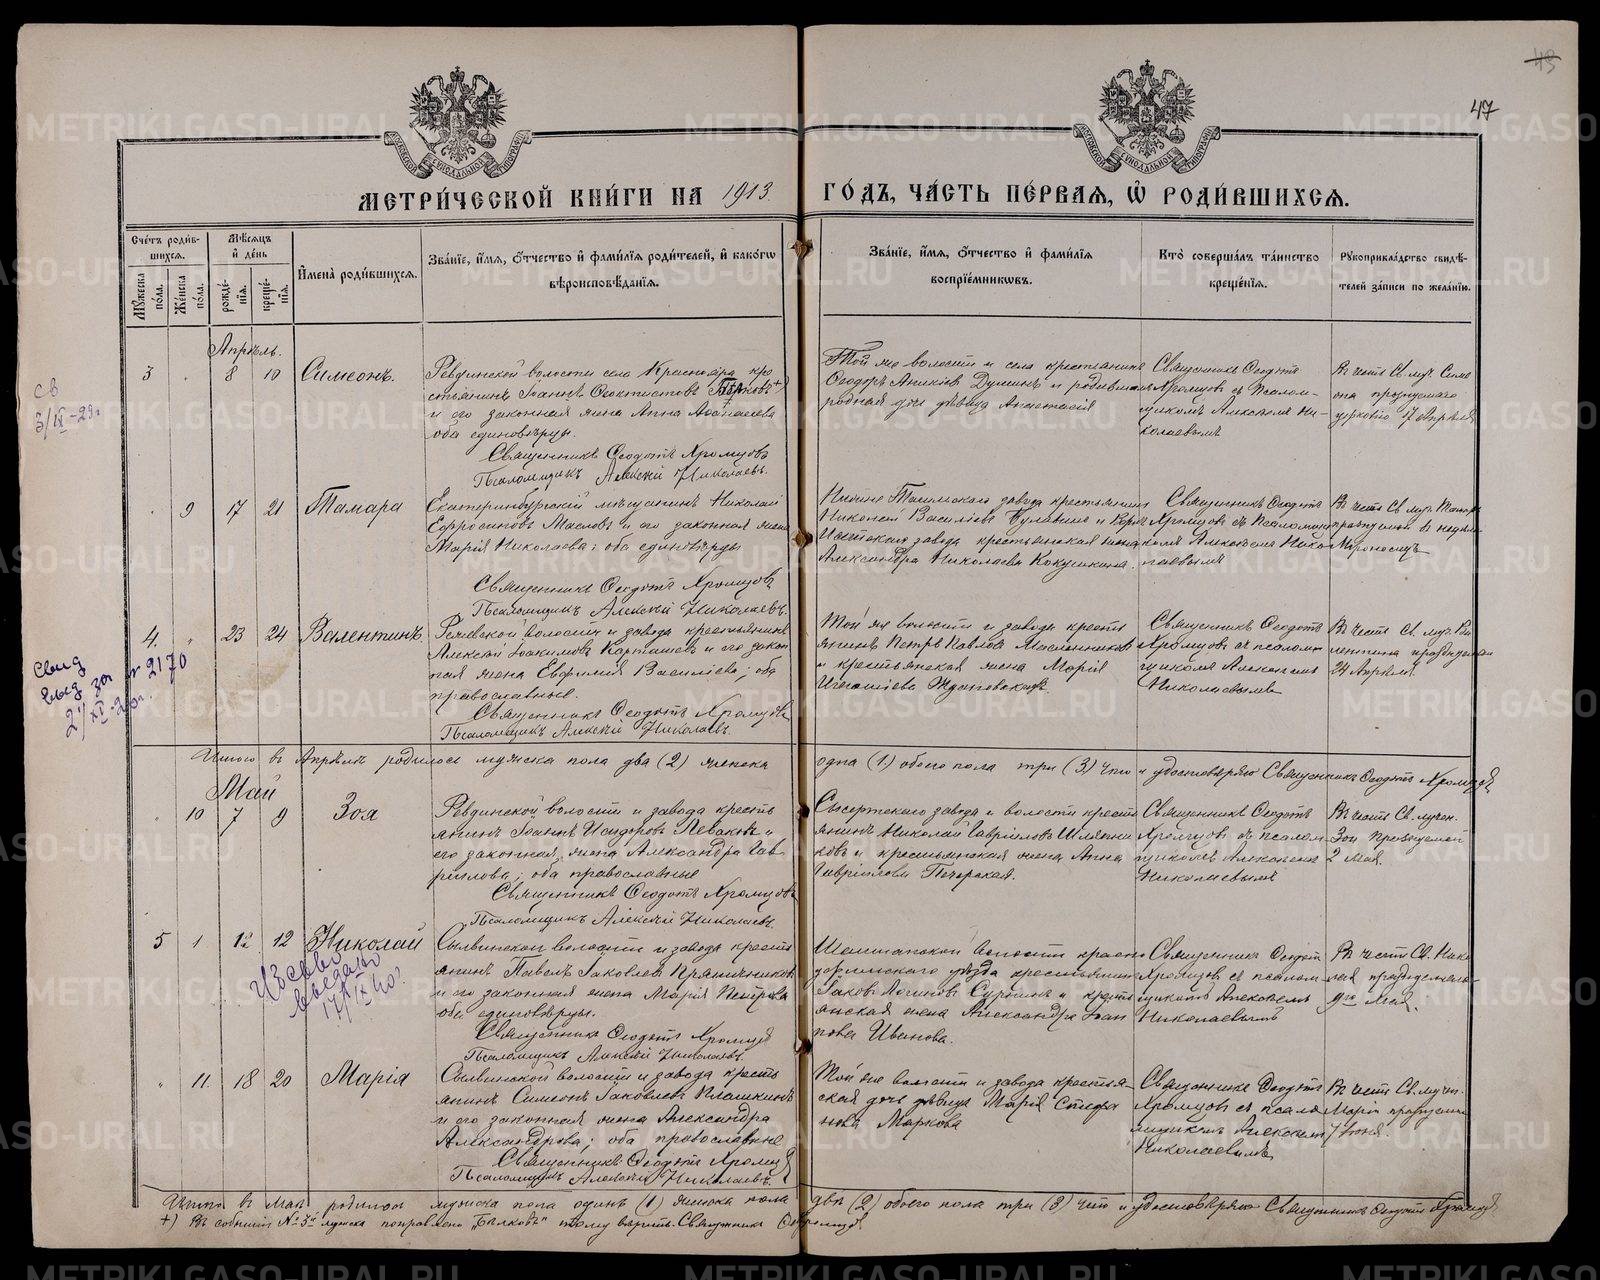 43
47
МЕТРИ́ЧЕСКОЙ КНИ́ГИ НА 1913 ГО́ДЪ, ЧА́СТЬ ПЕ́РВАЯ, Ѡ҆ РОДИ́ВШИХСЯ.
Сче́тъ роди́вшихся.
Му́жеска по́ла.
Же́нска по́ла.
Мѣ́сяцъ и҆ де́нь
рожде́нїя.
креще́нїя.
И҆мена̀ роди́вшихся.
Зва́нїе, и҆́мя, ѻ҆́тчество и҆ фами́лїя роди́телей, и҆ како́гѡ вѣроисповѣ́данїя.
Зва́нїе, и҆́мя, ѻ҆́тчество и҆ фами́лїя воспрїе́мникѡвъ.
Кто̀ соверша́лъ та́инство креще́нїя.
Рꙋкоприкла́дство свидѣ́телей за́писи по жела́нїю.
Апрѣль.
3 8 10 Симеонъ.
Ревдинской волости села Краснояра кре
стьянинъ Іоаннъ Феоктистовъ
и его законная жена Анна
оба единовѣрцы.
Священникъ Ѳеодотъ Хромцовъ
Псаломщикъ Алексій Николаевъ.
Той же волости и села крестьянинъ
Ѳеодоръ Аникіевъ Думинъ и
родная дочь дѣвица Анастасія
Священникъ Ѳеодотъ
Хромцовъ съ Псалом-
щикомъ Алексѣемъ Ни-
колаевымъ
Въ честь Св. муч. Симе
она празднуемаго
церковію 17 Апрѣля
св
3/IX-29г
9 17 21 Тамара
Екатеринбургскій мѣщанинъ Николай
Ефросиновъ Масловъ и его законная жена
Марія Николаева; оба единовѣрцы
Священникъ Ѳеодотъ Хромцовъ
Псаломщикъ Алексій Николаевъ.
завода крестьянинъ
Василіевъ
завода крестьянская жена
Александра Николаева Кокушкина.
Священникъ Ѳеодотъ
Хромцовъ съ Псаломщи
комъ Алексѣемъ Никол
аевымъ
Въ честь Св. муч. Тамары
празднуемой въ недѣлю
Мѵроносицъ
4. 23 24 Валентинъ
волости и завода крестьянинъ
Алексій Іоакимовъ Карташевъ и его закон
ная жена Евфимія Василіева; оба
православные.
Священникъ Ѳеодотъ Хромцовъ
Псаломщикъ Алексій Николаевъ.
Той же волости и завода кресть
янинъ Петръ Павловъ Масленниковъ
и крестьянская жена Марія
Игнатіева
Священникъ Ѳеодотъ
Хромцовъ съ псалом
щикомъ Алексѣемъ
Николаевымъ
Въ честь Св. муч. Ва
лентина празднуемаго
24 Апрѣля.
Свид
выд за № 2170
Итого въ Апрѣлѣ родилось мужска пола два (2) женска одна (1) обоего пола три (3) Что и удостовѣряю Священникъ Ѳеодотъ Хромцовъ
Май
10 7 9 Зоя
Ревдинской волости и завода кресть
янинъ Іоаннъ Исидоровъ Леваковъ и
его законная жена Александра Гав
рилова; оба православные
Священникъ Ѳеодотъ Хромцовъ
Псаломщикъ Алексій Николаевъ.
Сысертскаго завода и волости кресть
янинъ Николай Гавріиловъ Шляпни
ковъ и крестьянская жена Анна
Гавріилова Печерская.
Священникъ Ѳеодотъ
Хромцовъ съ псалом
щикомъ Алексѣемъ
Николаевымъ
Въ честь Св. мучен.
Зои празднуемой
2 Мая.
5 1 12 12 Николай
Сылвинской волости и завода кресть
янинъ Павелъ Іаковлевъ Пряничниковъ
и его законная жена Марія Петрова
оба единовѣрцы.
Священникъ Ѳеодотъ Хромцовъ
Псаломщикъ Алексій Николаевъ.
волости красно
уфимскаго уѣзда крестьянинъ
Іаковъ Логиновъ и кресть
янская жена Александра Іоан
нова Иванова.
Священникъ Ѳеодотъ
Хромцовъ съ псалом
щикомъ Алексѣемъ
Николаевымъ
Въ честь Св. Нико
лая празднуемаго
9го Мая.
11. 18 20 Марія
Сылвинской волости и завода кресть
янинъ Симеонъ Іаковлевъ Плашкинъ
и его законная жена Александра
Александрова; оба православные
Священникъ Ѳеодотъ Хромцовъ
Псаломщикъ Алексій Николаевъ.
Той же волости и завода крестья-
ская дочь дѣвица Марія
Маркова
Священникъ Ѳеодотъ
Хромцовъ съ псало
мщикомъ Алексѣемъ
Николаевымъ
Въ честь Св. мучен.
Маріи празднуемой
7 Іюня.
Итого въ Маѣ родилось мужска пола одинъ (1) женска пола двѣ (2) обоего пола три (3) Что и удостовѣряю Священникъ Ѳеодотъ Хромцовъ
+) Въ статьѣ № 3й мужска поправлено „Балковъ" тому вѣрить. Священникъ Ѳ. Хромцовъ.
METRIKI.GASO-URAL.RU